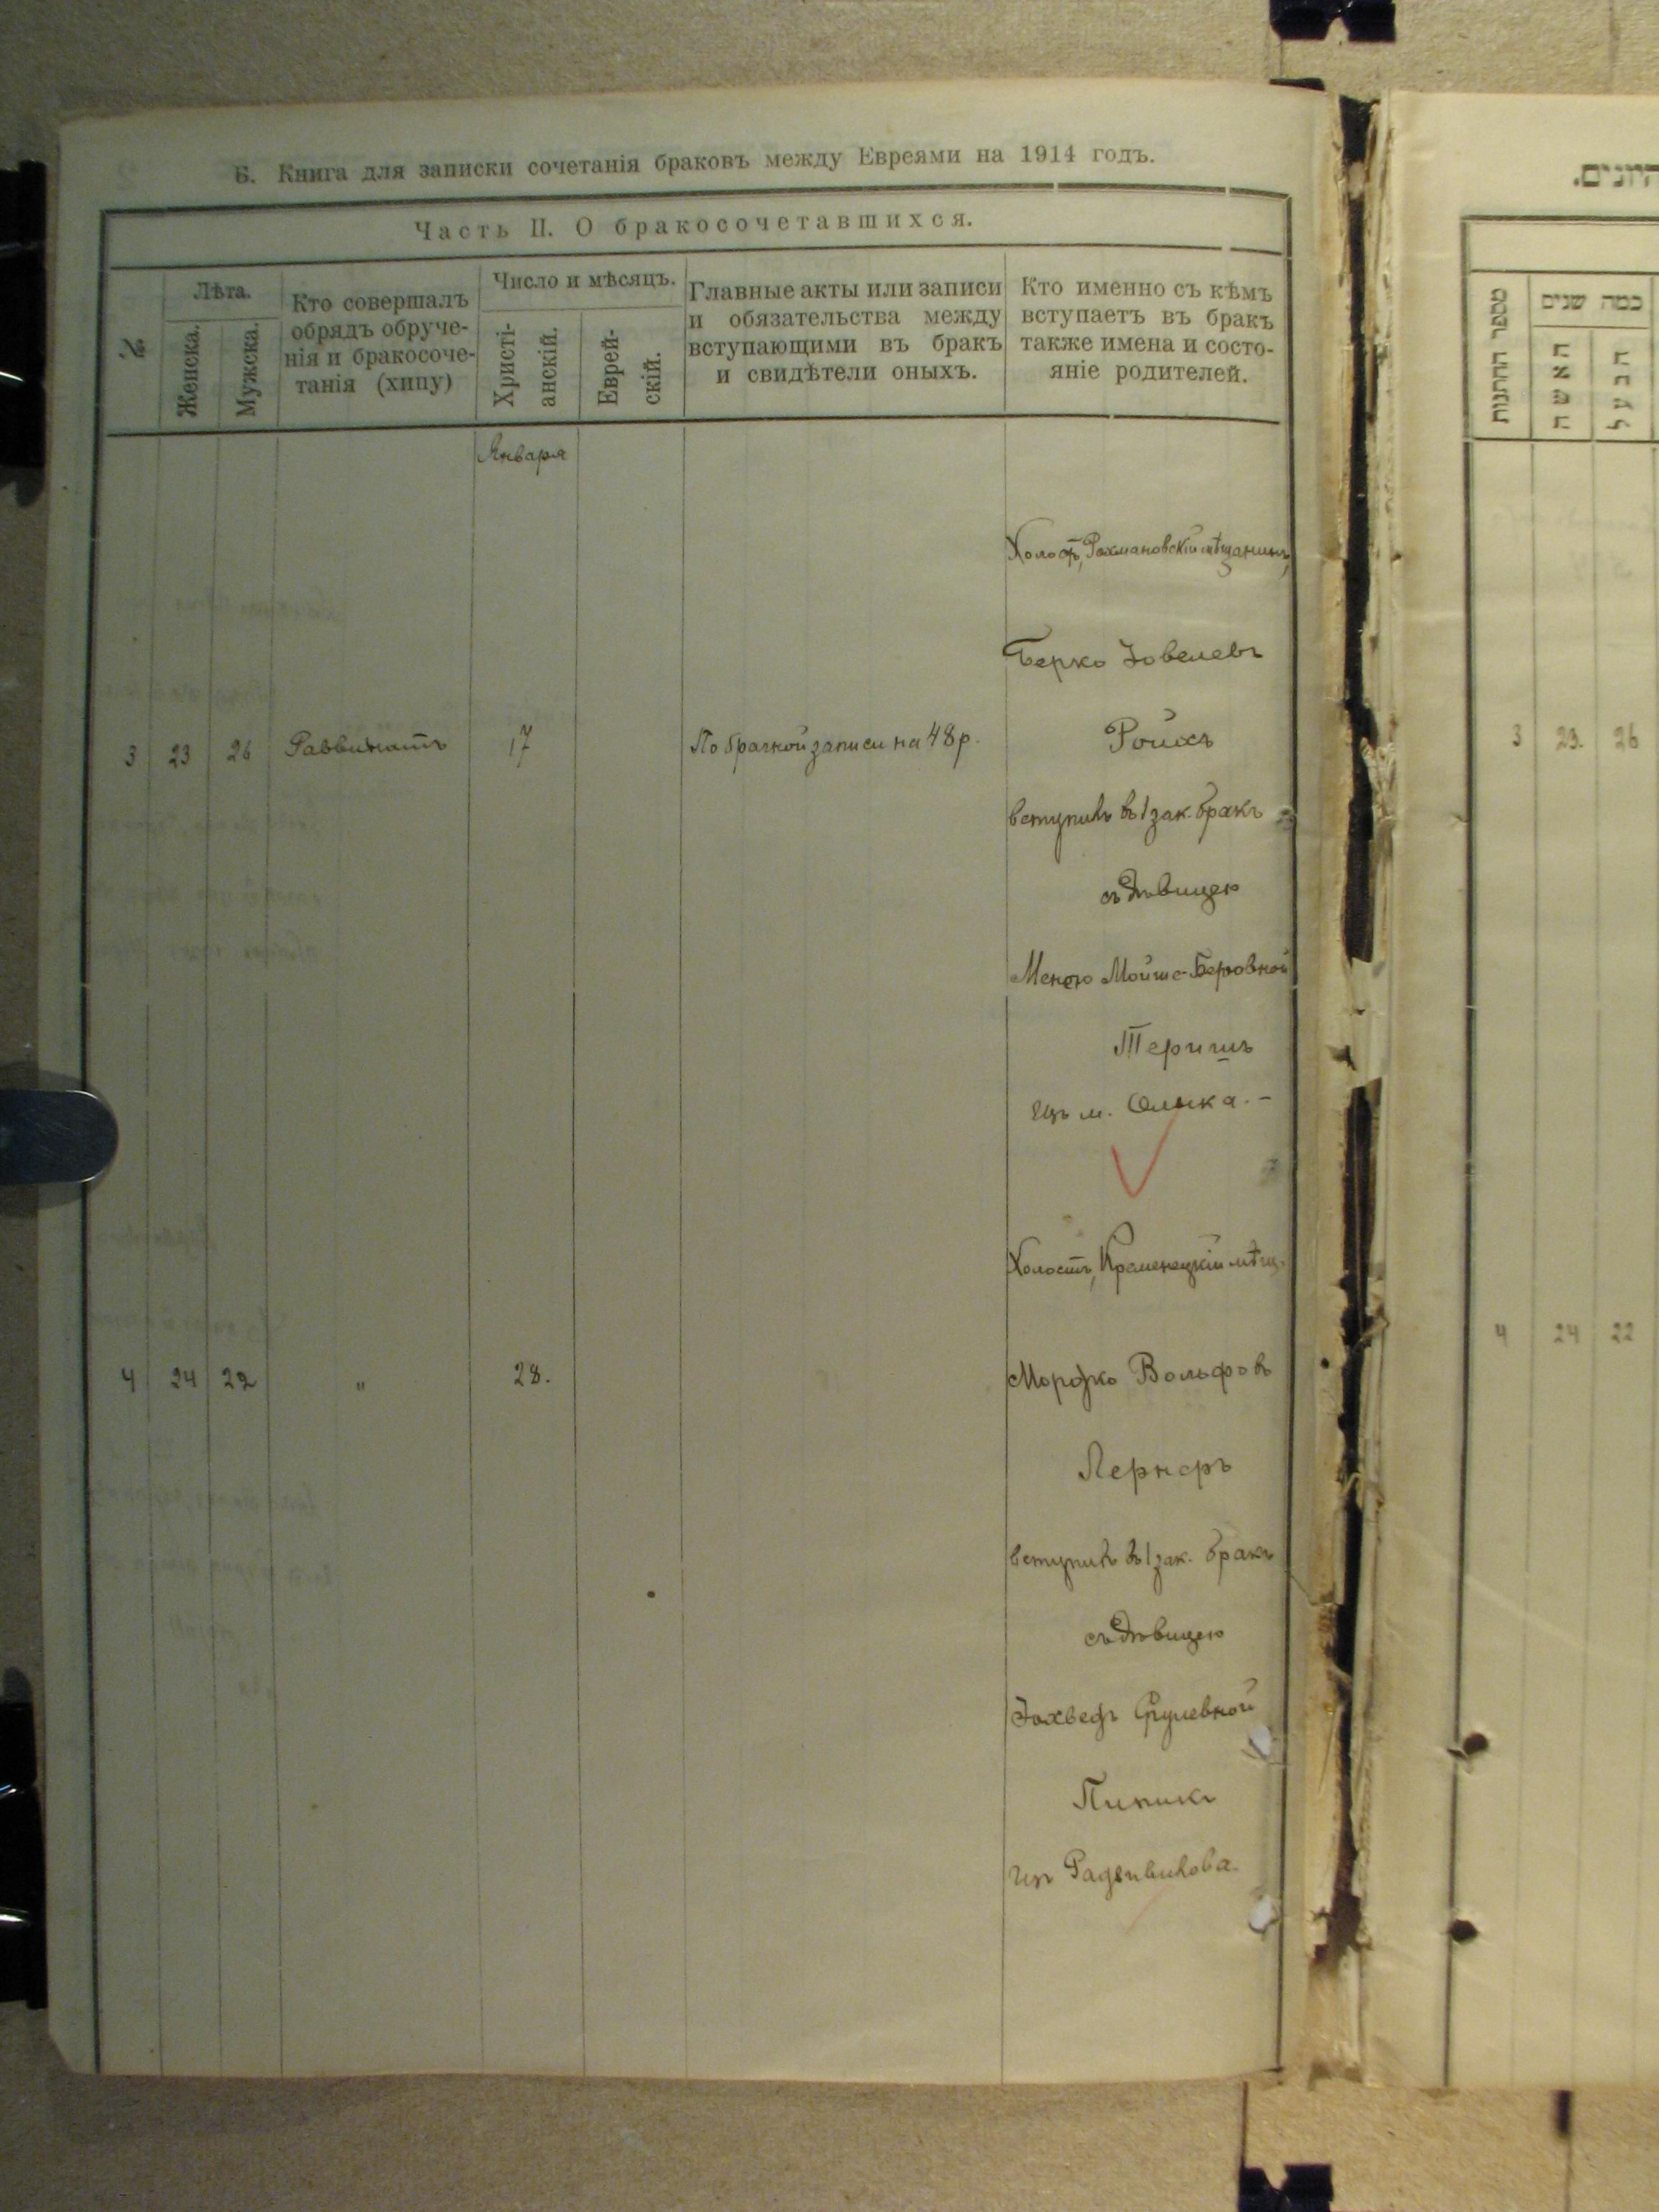 Б. Книга для записки сочетанія браковъ между Евреями на 1914 годъ.
Часть II. О бракосочетавшихся.
№
Лѣта.
Женска.
Мужска.
Кто совершалъ
обрядъ обруче-
нія и бракосоче-
танія (хипу)
Число и мѣсяцъ.
Христі-
анскій.
Еврей-
скій.
Главные акты или записи
и обязательства между
вступающими въ бракъ
и свидѣтели оныхъ.
Кто именно съ кѣмъ
вступаетъ въ бракъ
также имена и состо-
яніе родителей.
Января
Холостъ, Рахмановскій мѣщанинъ,
Берко Іовелевъ
3 23 26 Раввинатъ 17 По брачной записи на 48 р. Ройхъ
вступилъ въ 1 зак. бракъ
съ дѣвицею
Менею Мойше-Беровной
Теришъ
изъ м. Олыка. -
Холостъ, Кременецкій мѣщ.
4 24 22 " 28. Мордко Вольфовъ
Лернеръ
вступилъ въ 1 зак. бракъ
съ дѣвицею
Іохведъ Срулевной
Пипикъ
изъ Радзивилова.
מספר החתנות
כמה שנים
האשה
הבעל
3 23. 26
4 24 22